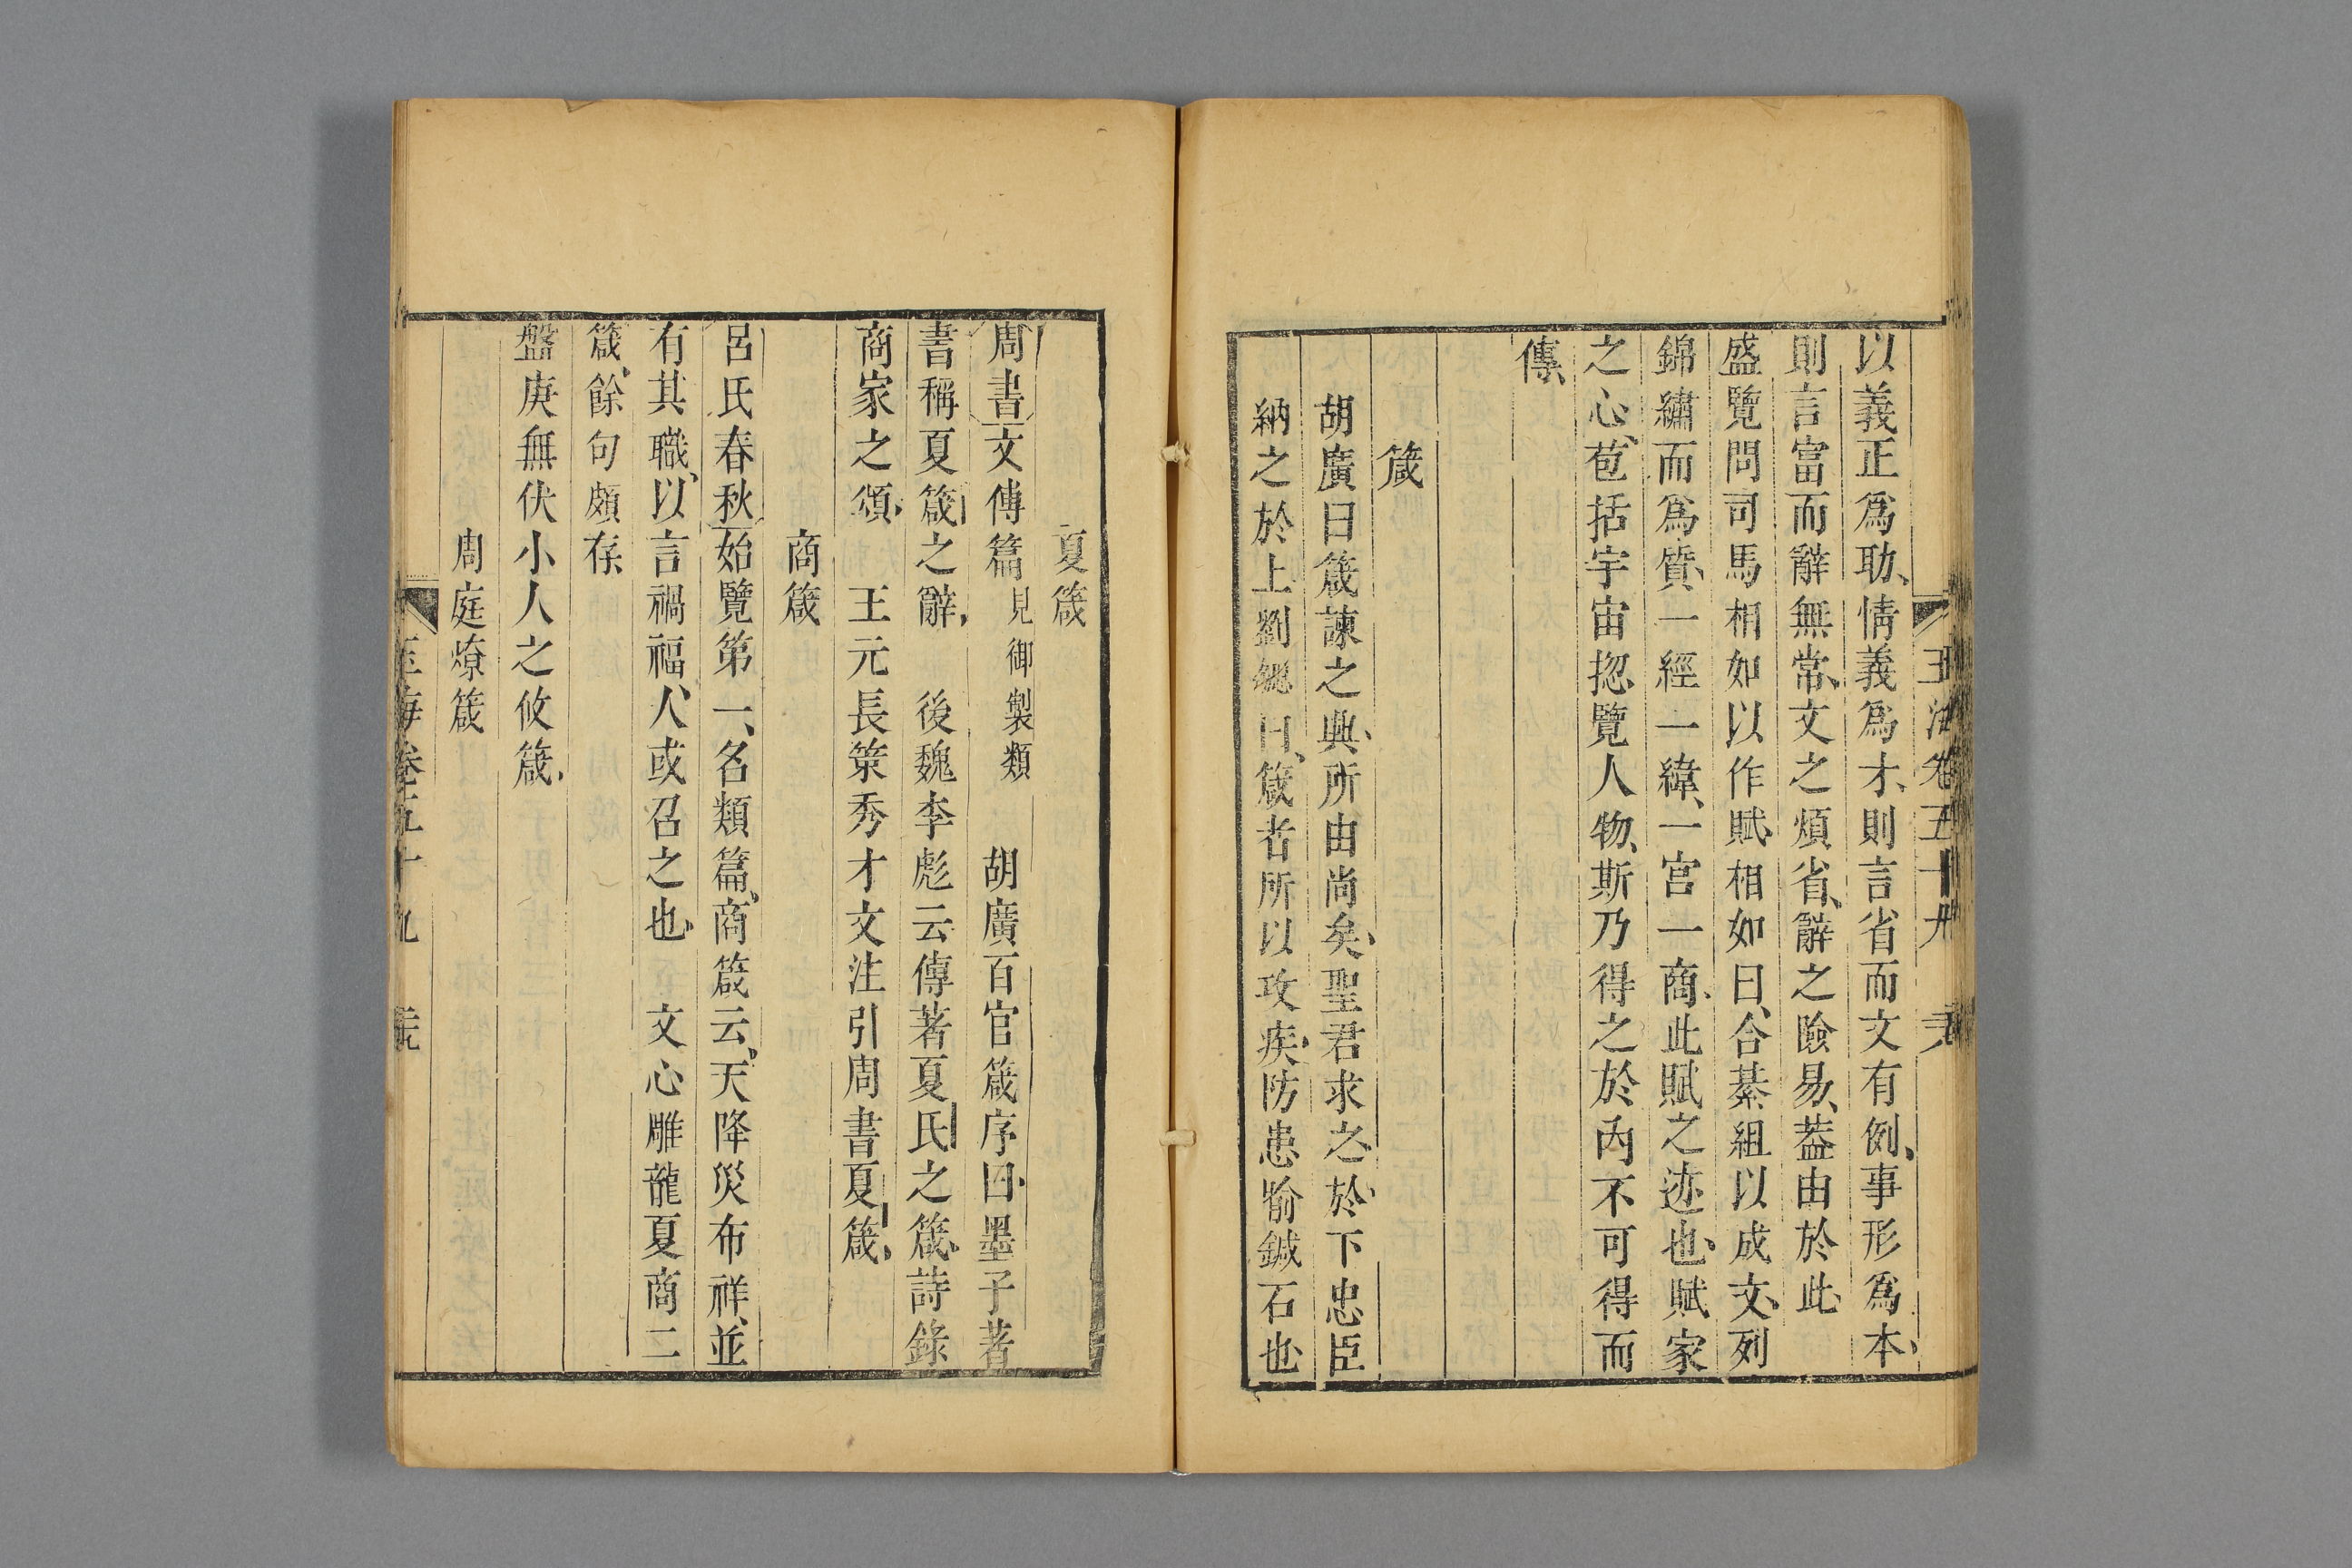 玉海卷五十九
以義正爲助、情義爲才、則言省而文有例、事形爲本、
則言富而辭無常、文之煩省、辭之險易、葢由於此、
盛覽問司馬相如以作賦、相如曰、合綦組以成文、列
錦繡而爲質、一經一緯、一宮一商、此賦之迹也、賦家
之心、苞括宇宙、揔覽人物、斯乃得之於內、不可得而
傳、
箴
胡廣曰箴諫之興、所由尚矣、聖君求之、於下忠臣
納之於上劉勰曰、箴者所以攻疾防患喻鍼石也
夏箴
周書文傳篇見御製類　胡廣百官箴序曰、墨子著
書稱夏箴之辭、　後魏李彪云傳著夏氏之箴、詩錄
商家之頌、　王元長策秀才文注引周書夏箴、
商箴
呂氏春秋始覽第一、名類篇、商箴云、天降災布祥、並
有其職、以言禍福、人或召之也、　文心雕龍夏商二
箴、餘句頗存
盤庚無伏小人之攸箴、
周庭燎箴
玉海卷五十九